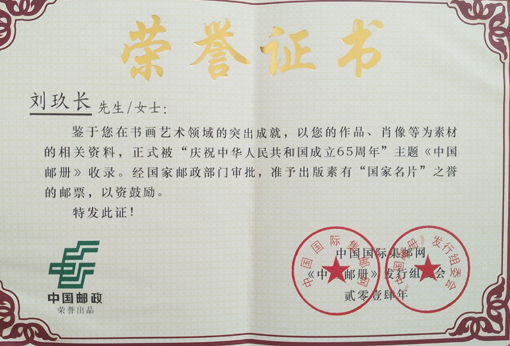 荣誉证书
刘玖长 先生/女士:
鉴于您在书画艺术领域的突出成就，以您的作品、肖像等为素材
的相关资料，正式被“庆祝中华人民共和国成立65周年”主题《中国
邮册》收录。经国家邮政部门审批，准予出版素有“国家名片”之誉
的邮票，以资鼓励。
特发此证！
中国国际集邮网
《中国邮册》发行组委会
贰零壹肆年
中国国际集邮网
《中国邮册》发行组委会
中国邮政
荣誉出品